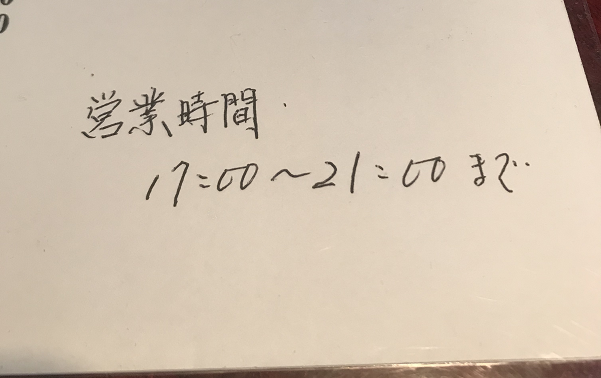 営業時間
17:00〜21:00まで